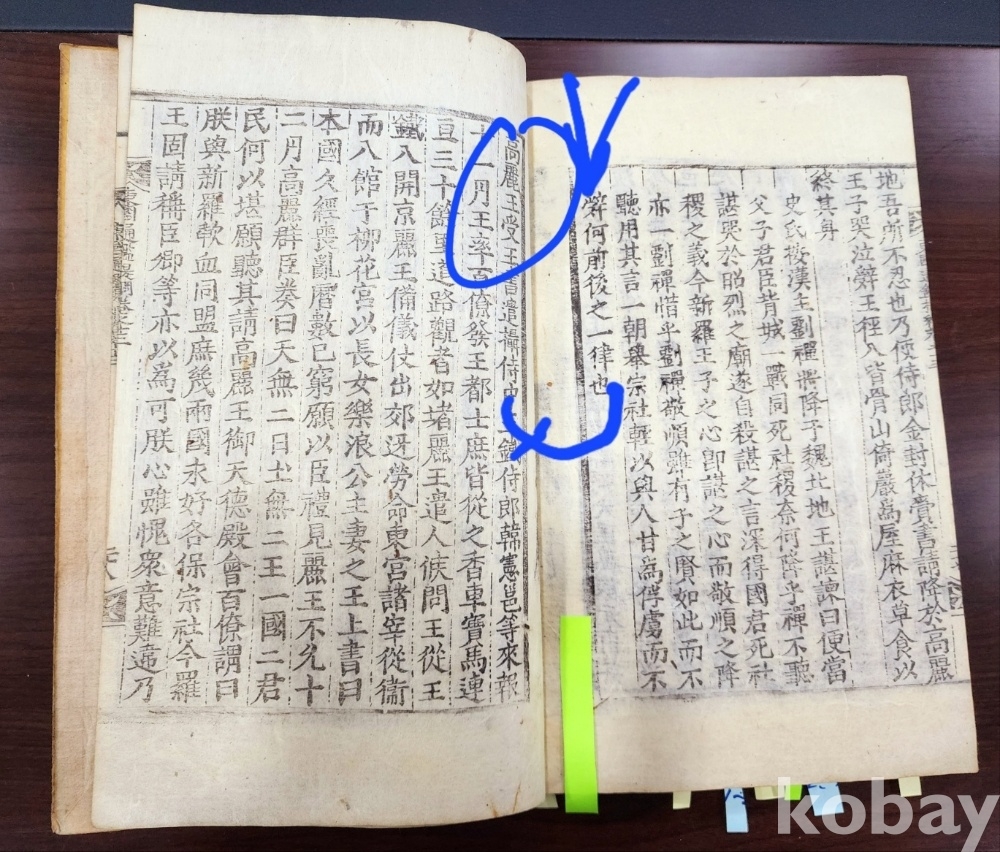 地吾所不忍也乃使侍郎金封休賷書請降於高麗
王子哭泣辭王徑入皆骨山倚巖爲屋麻衣草食以
終其身
史氏按漢主劉禪將降于魏北地王諶諫曰便當
父子君臣背城一戰同死社稷奈何降乎禪不聽
諶哭於昭烈之廟遂自殺諶之言深得國君死社
稷之義今新羅王子之心卽諶之心而敬順之降
亦一劉禪惜乎劉禪敬順雖有子之賢如此而不
聽用其言一朝擧宗社輕以與人甘爲俘虜而不
辭何前後之一律也
高麗王受王書遣攝侍鐵侍郎韓憲邕等來報
十一月王率百僚發王都士庶皆從之香車寶馬連
亘三十餘里道路觀者如堵麗王遣人候問王從王
鐵入開京麗王備儀仗出郊迓勞命東宮諸宰從衞
而入館于柳花宮以長女樂浪公主妻之王上書曰
本國久經喪亂曆數已窮願以臣禮見麗王不允十
二月高麗群臣奏曰天無二日土無二王一國二君
民何以堪願聽其請高麗王御天德殿會百僚謂曰
朕與新羅歃血同盟庶幾兩國永好各保宗社今羅
王固請稱臣卿等亦以爲可朕心雖愧衆意難違乃
kobay